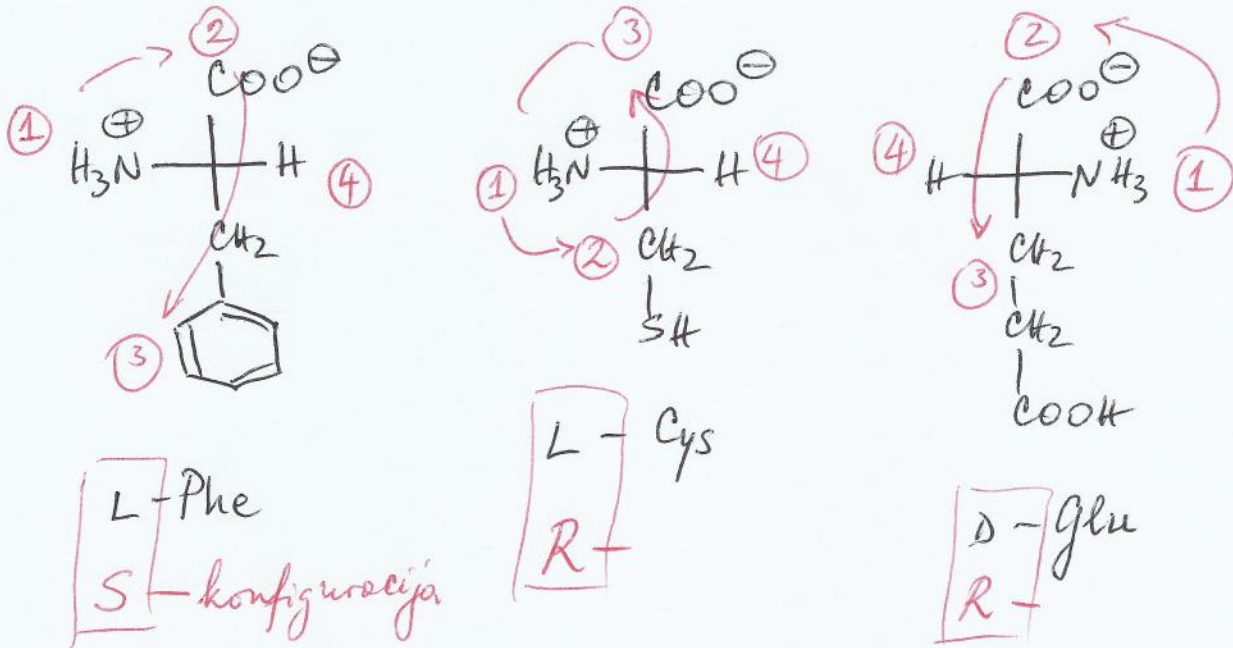 ②
COO⊖
①
⊕
H₃N
H
④
CH₂
③
L - Phe
S - konfiguracija
③
COO⊖
⊕
①
H₃N
H
④
②
CH₂
SH
L - Cys
R -
②
COO⊖
④
H
⊕
NH₃
①
③
CH₂
CH₂
COOH
D - Glu
R -